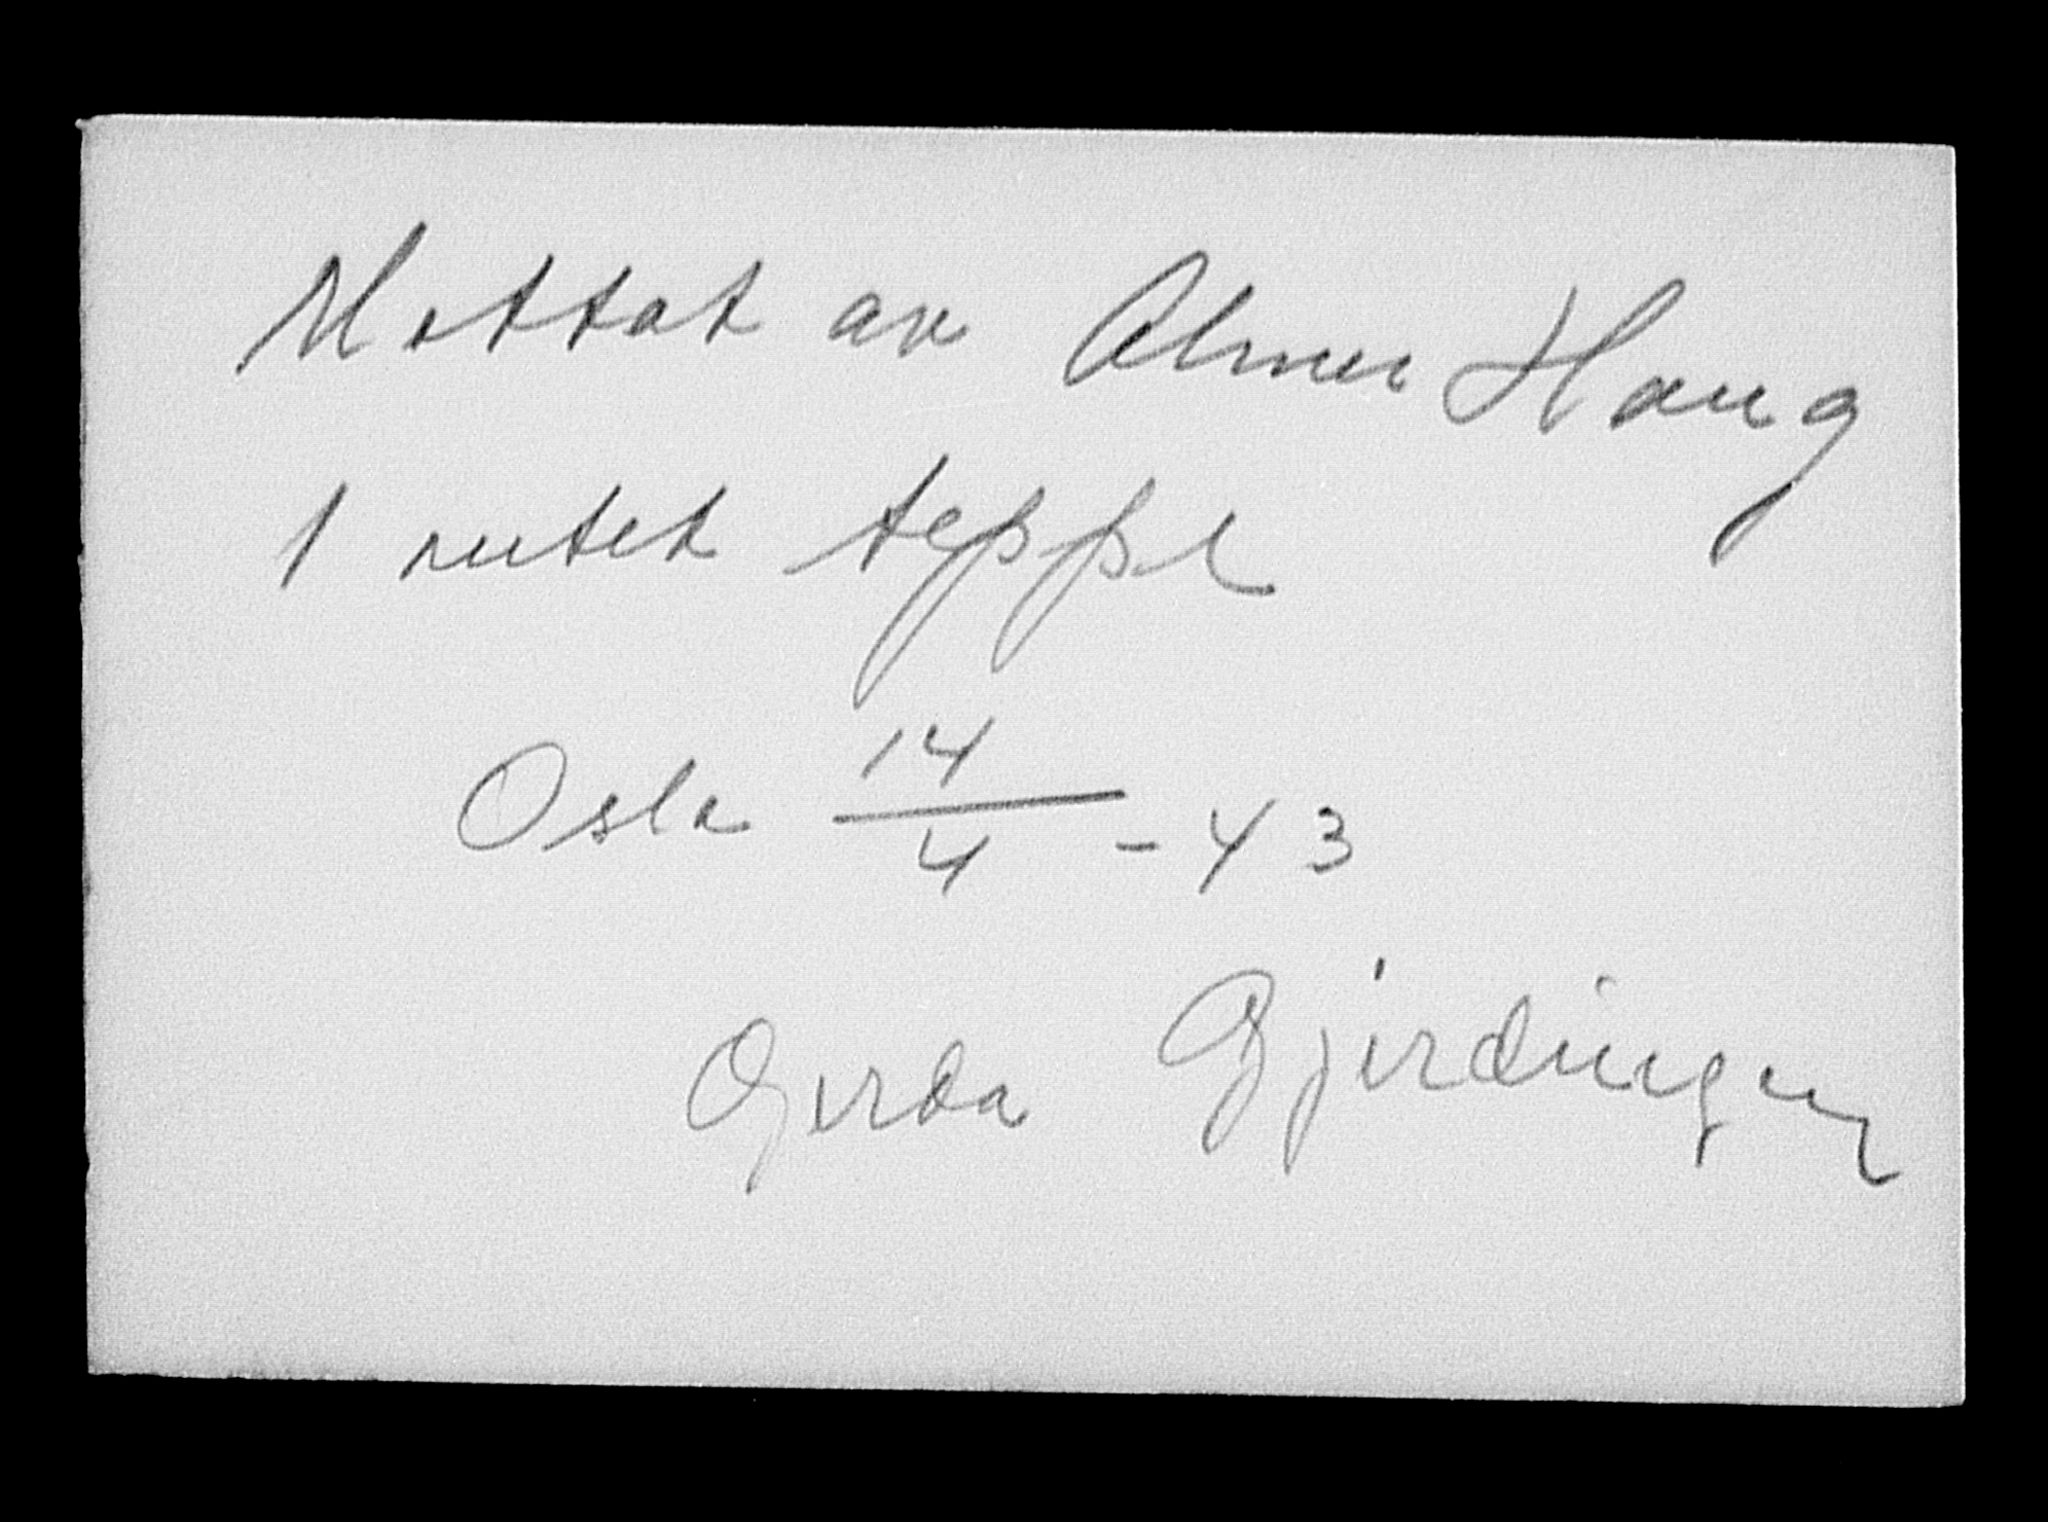 Mottat av Almer Haug
1 rutet teppe
Oslo 14/4 - 43
Gerda Gjerdingen